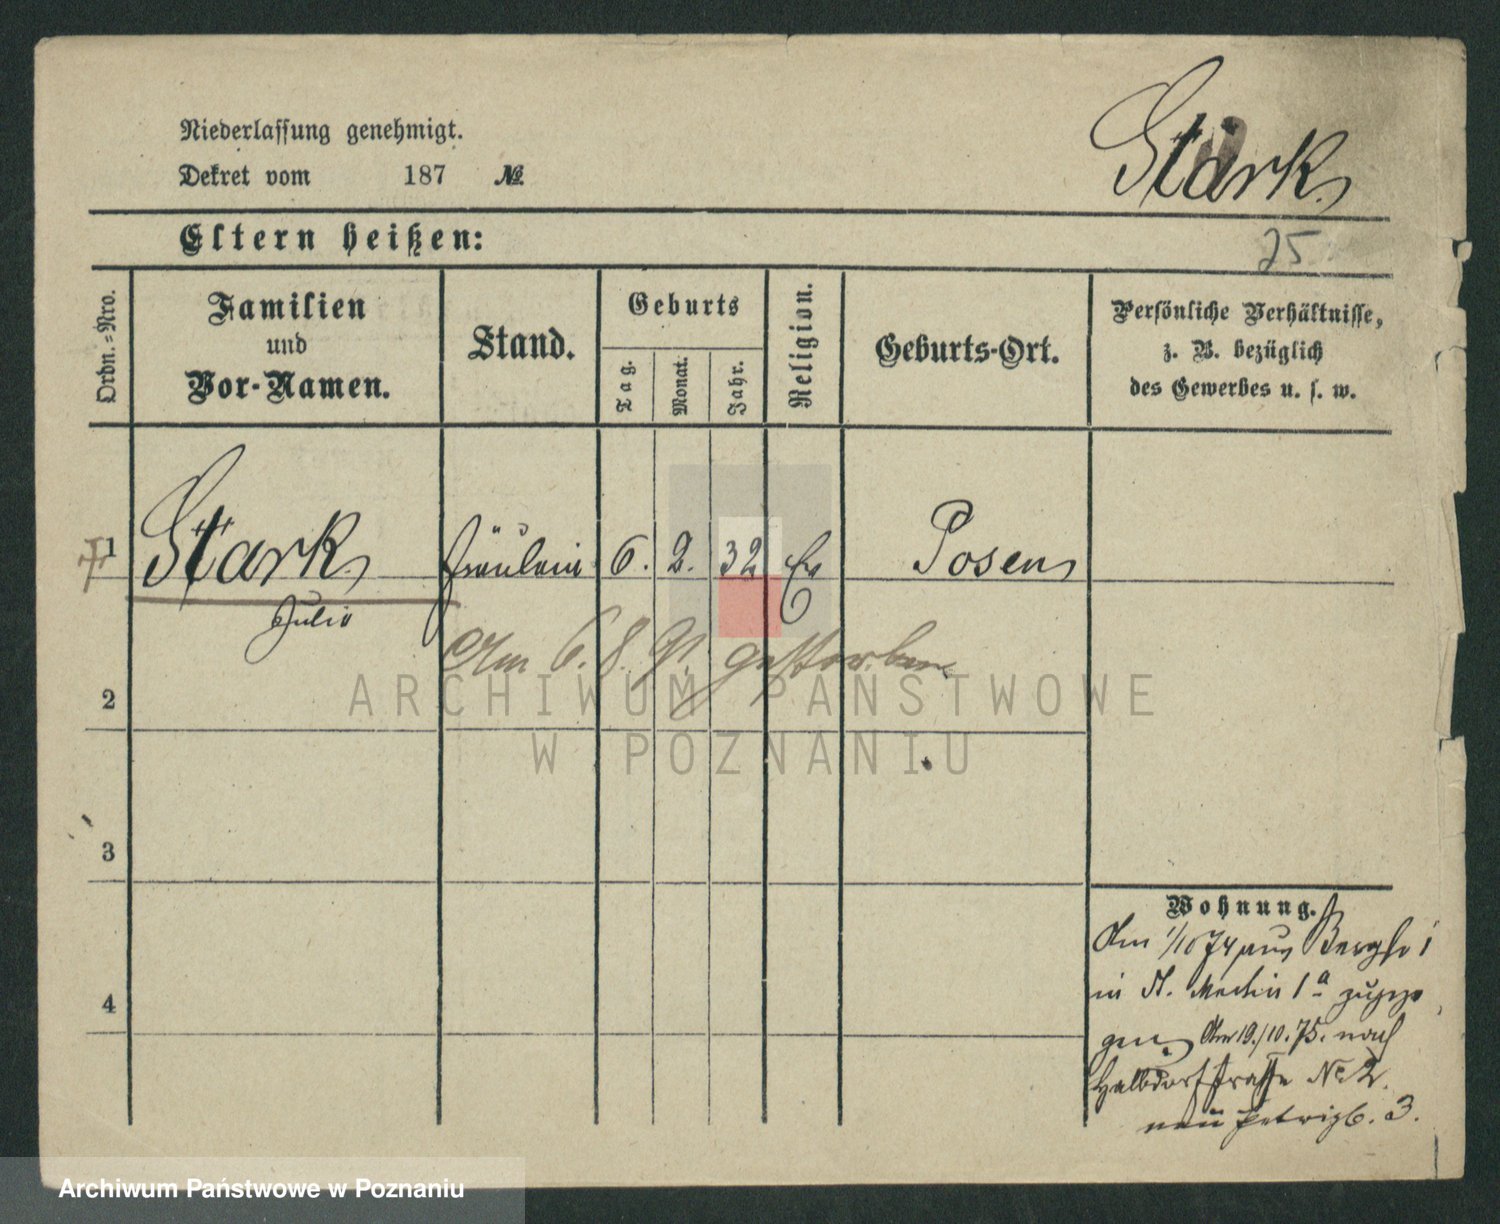 Niederlassung genehmigt.
Dekret vom 187 №
Stark
25
Eltern heißen:
Ordn.=Nro.
Familien
und
Vor-Namen.
Stand.
Geburts
Tag.
Monat.
Jahr.
Religion.
Geburts-Ort.
Persönliche Verhältnisse,
z. B. bezüglich
des Gewerbes u. s. w.
1 Stark Fräulein 6. 2. 32 Posen
Julie
Am 6. 8. gestorben
ARCHIWUM PAŃSTWOWE
W POZNANIU
2
3
4
Wohnung.
Am 1/10 74 aus 1
in St. Martin 1a zugezo
gen Am 19./10. 75. nach
Halbdorfstrasse № 2.
3.
Archiwum Państwowe w Poznaniu